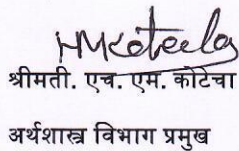 HMKotecha
श्रीमती. एच. एम. कोटेचा
अर्थशास्त्र विभाग प्रमुख